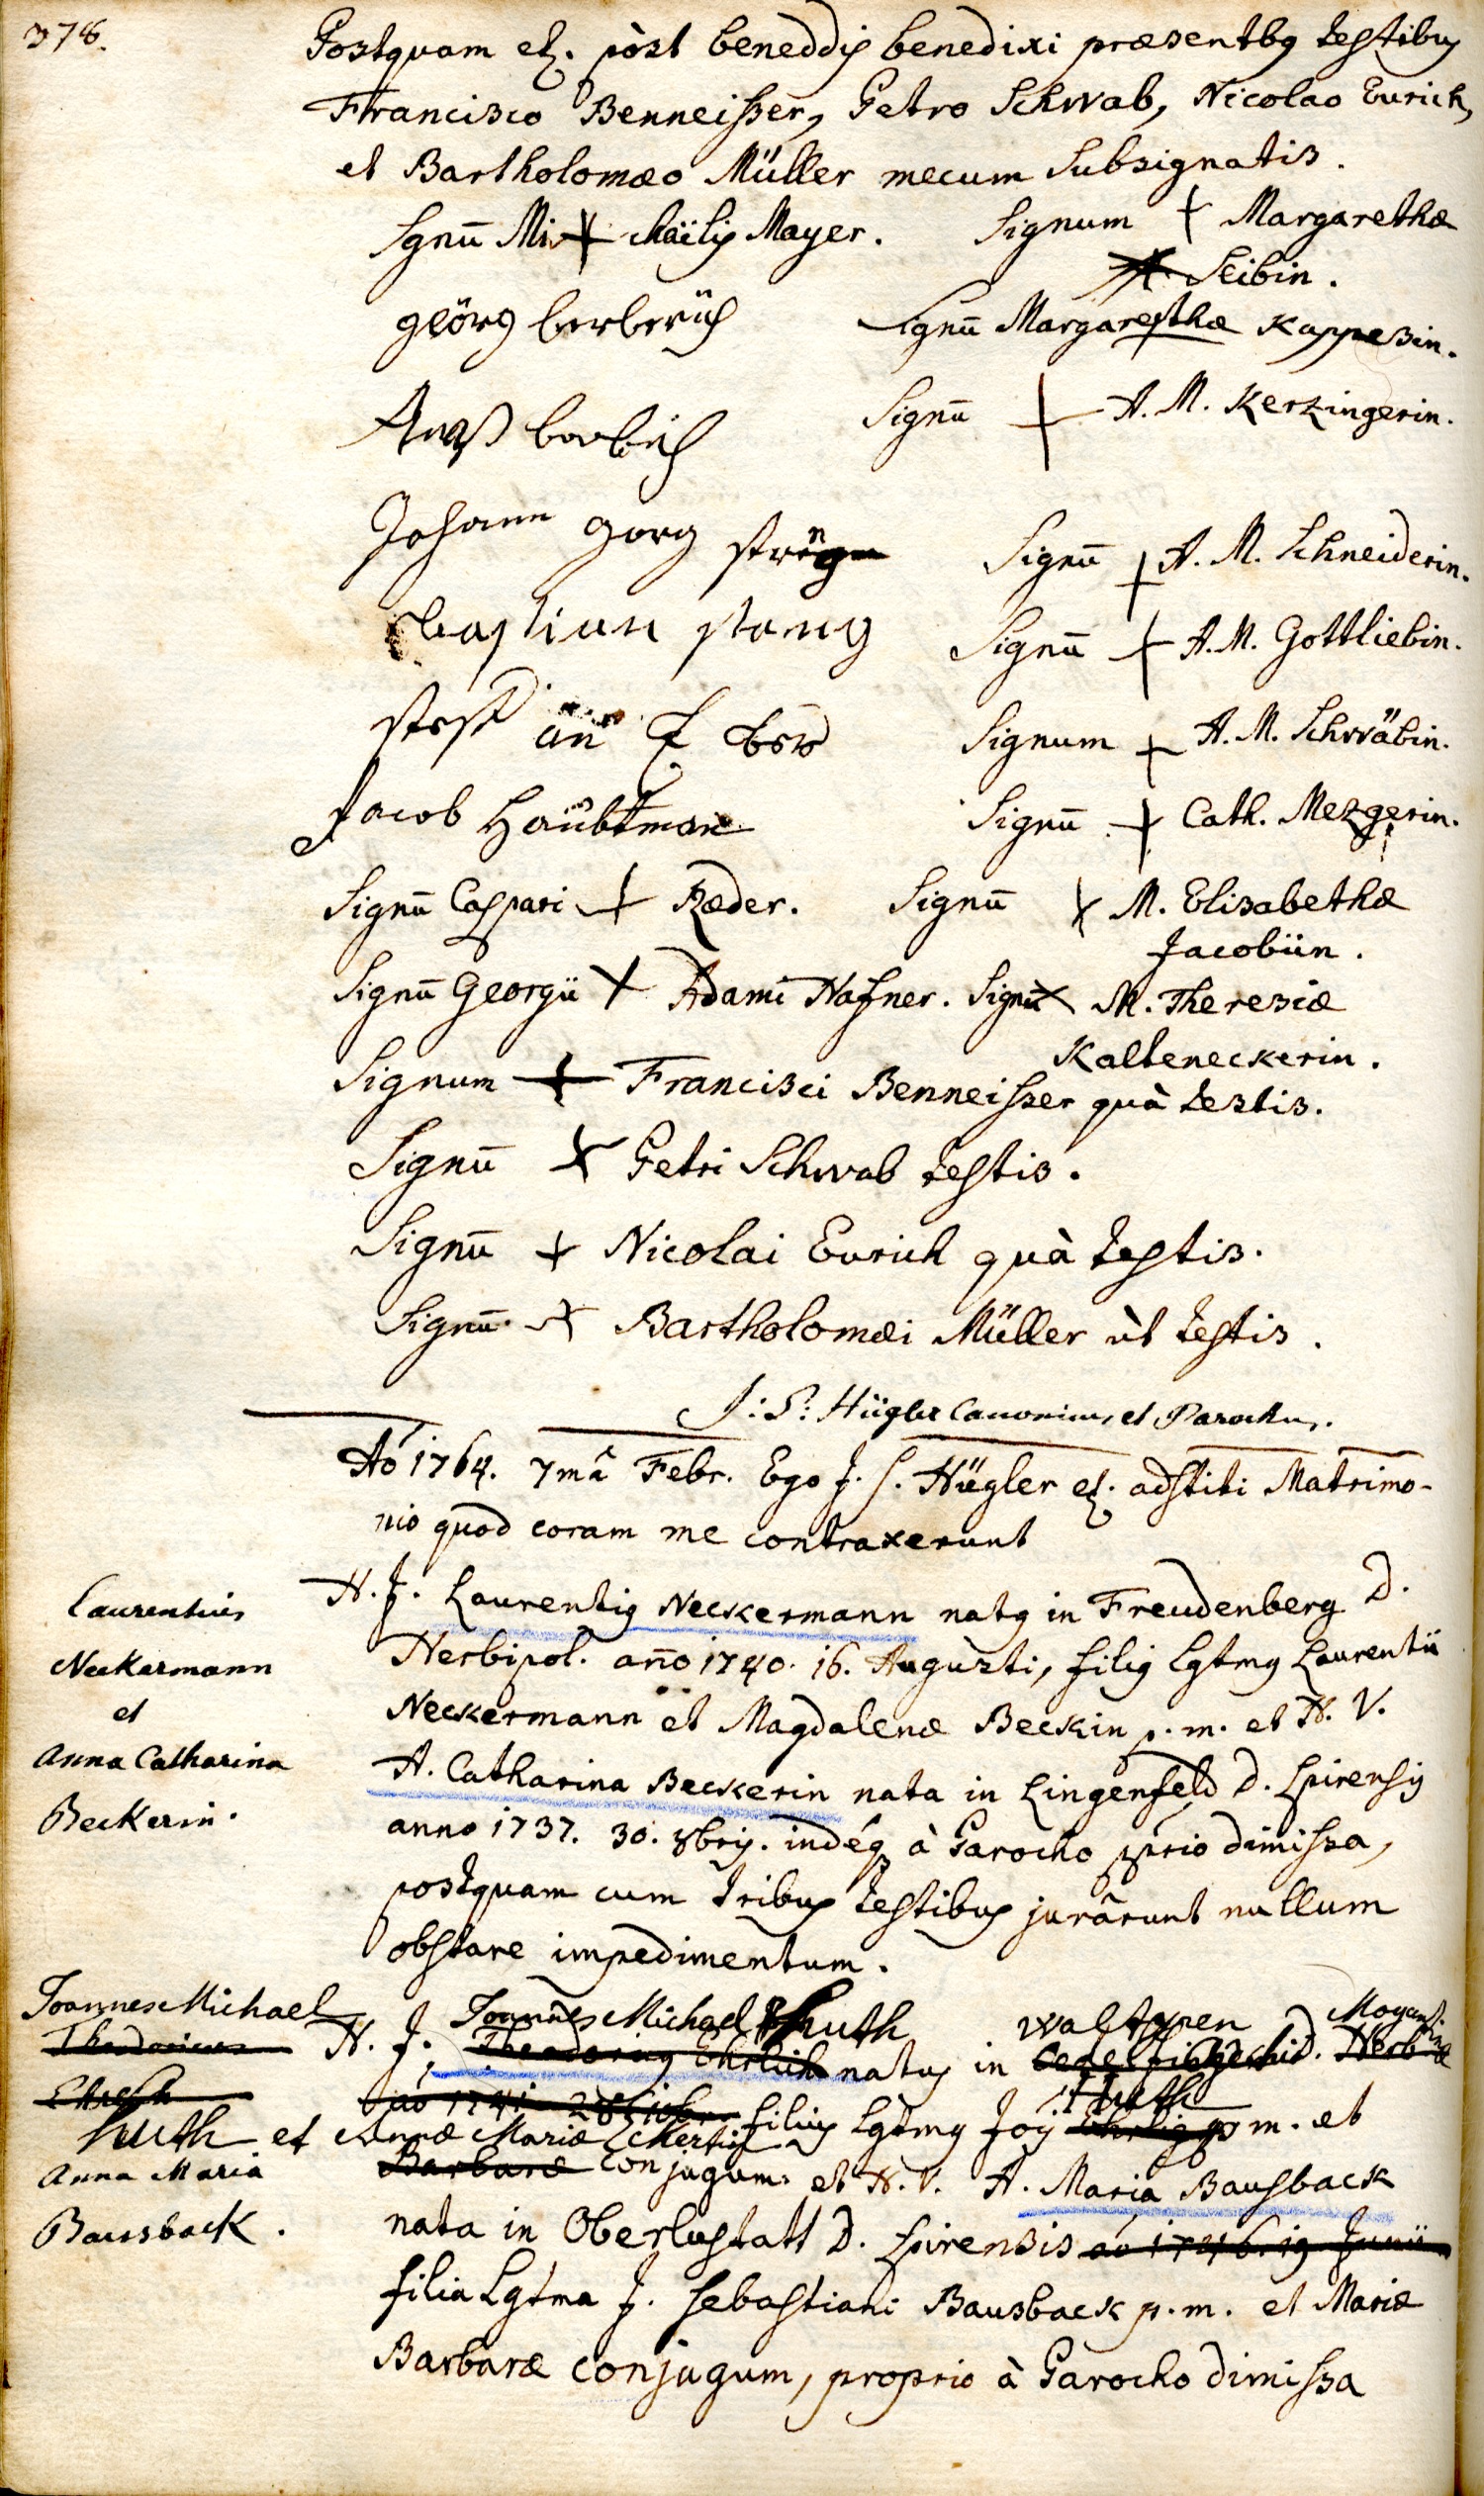 378.
Postquam etz. pòst beneddis benedixi præsentbg testibus
Francisco Benneisser, Petro Schwab, Nicolao Eurich,
et Bartholomæo Müller mecum subsignatis.
Sgnū Mi + chaëlis Mayer. Signum + Margarethæ
Seibin.
geörg berberich Signū Margarethæ Kappesin.
Signū + A. M. Kerzingerin.
Johann gorg
Signū + A. M. Schneiderin.
bastian stang Signū + A. M. Gottliebin.
Signum + A. M. Schwäbin.
Jacob Haübtman Signū + Cath. Mezgerin.
Signū Caspari + Ræder. Signū + M. Elisabethæ
Jacobiin.
Signū Georgii + Adami Hafner. Signū + M. Theresiæ
Kalteneckerin.
Signum + Francisci Benneisser quà testis.
Signū + Petri Schwab testis.
Signū + Nicolai Eurich quà testis.
Signū + Bartholomæi Müller ùt testis.
J: S: Hügler Canonicus et Parochus.
Aó 1764. 7mâ Febr. Ego J. S. Hügler etz. adstiti Matrimo-
nio quod coram me contraxerunt
Laurentius
Neckermann
et
Anna Catharina
Beckerin.
H. J. Laurentig Neckermann natg in Freudenberg D.
Herbipol. año 1740. 16. Augusti, filig Lgtmg Laurentii
Neckermann et Magdalenæ Beckin p. m. et H. V.
A. Catharina Beckerin nata in Lingenfeld D. Spirensis
anno 1737. 30. 8bris. indéq à Parocho pprio dimissa,
postquam cum tribus testibus jurârunt nullum
obstare impedimentum.
Joannes Michael
Theodoricus
Ehrlich
Huth et
Anna Maria
Bausback.
Joannes Michael Huth waltzpen Mogunt.
H. J. Theodoricg Ehrlich natus in D. Herb
Huth
filius Lgtmg Jois Ehrlig p m. et
Annæ Mariæ
Barbaræ conjugum. et H. V. A. Maria Bausback
nata in Oberlustatt D. Spirensis aó 1746. 19 Junii
filia Lgtma J. Sebastiani Bausback p. m. et Mariæ
Barbaræ conjugum, proprio à Parocho dimissa